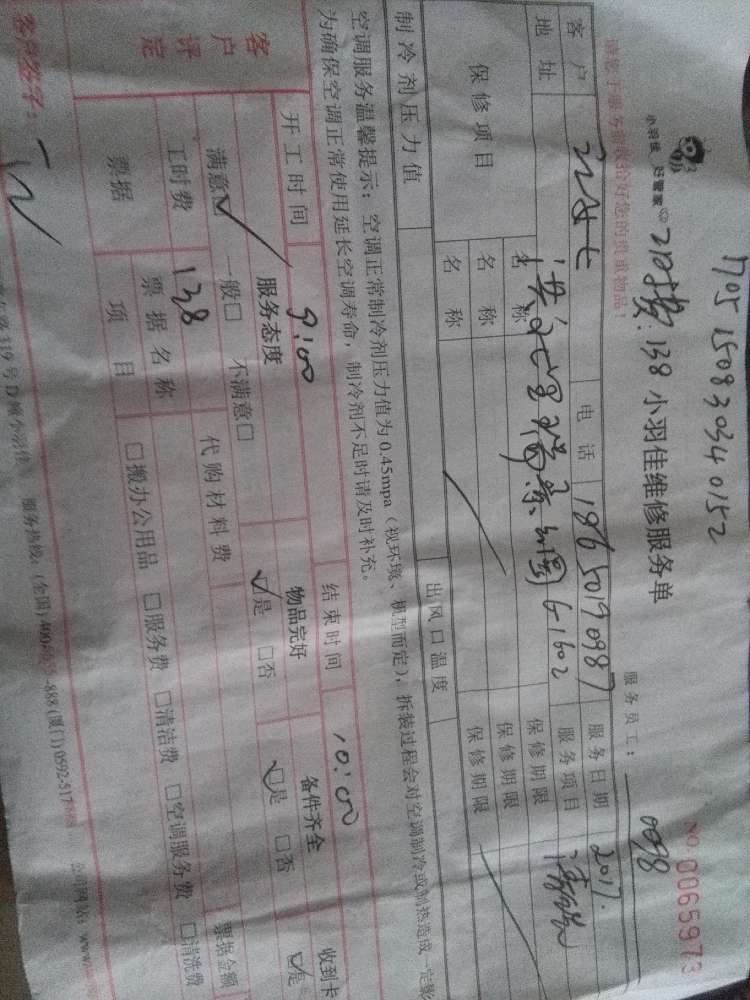 1705 15083034 0152
小羽佳 好管家
138 小羽佳维修服务单
NO. 0065973
请您于服务前收拾好您的贵重物品！
服务员工： 0098
客户
电话 18650190987
服务日期 2017.
地址
G1602
服务项目
保修项目
名称
保修期限
名称
保修期限
名称
保修期限
制冷剂压力值
出风口温度
空调服务温馨提示：空调正常制冷剂压力值为0.45mpa（视环境、机型而定），拆装过程会对空调制冷或制热造成一定影
为确保空调正常使用延长空调寿命，制冷剂不足时请及时补充。
开工时间 9:00
结束时间 10:00
客户评定
服务态度
物品完好
备件齐全
收到卡
满意☑ 一般□ 不满意□
☑是 □否
☑是 □否
☑是
工时费 138
代购材料费
票据金额
票据
票据名称
项目
□搬办公用品 □服务费 □清洁费 □空调服务费 □清洗费
客户签字：
319号D栋小羽佳 服务热线：(全国)400-
-888 (厦门)0592-517
公司网站：www.